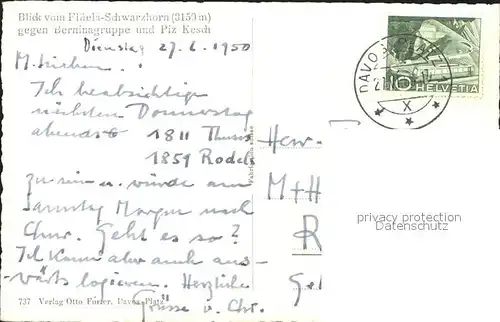 Blick vom Flüela-Schwarzhorn (3150 m)
gegen Berninagruppe und Piz Kesch
Dienstag 27. 6. 1950
M. Lieben!
Ich beabsichtige
nächsten Donnerstag
abends 1811 Thusis
1859 Rodels
zu sein u. würde am
Samstag Morgen nach
Chur. Geht es so?
Ich kann aber auch aus-
wärts logieren. Herzliche
Grüsse v. Chr.
737 Verlag Otto Furter, Davos-Platz
DAVOS PLATZ
X
10 HELVETIA
Herr
M + H
R
privacy protection
Datenschutz